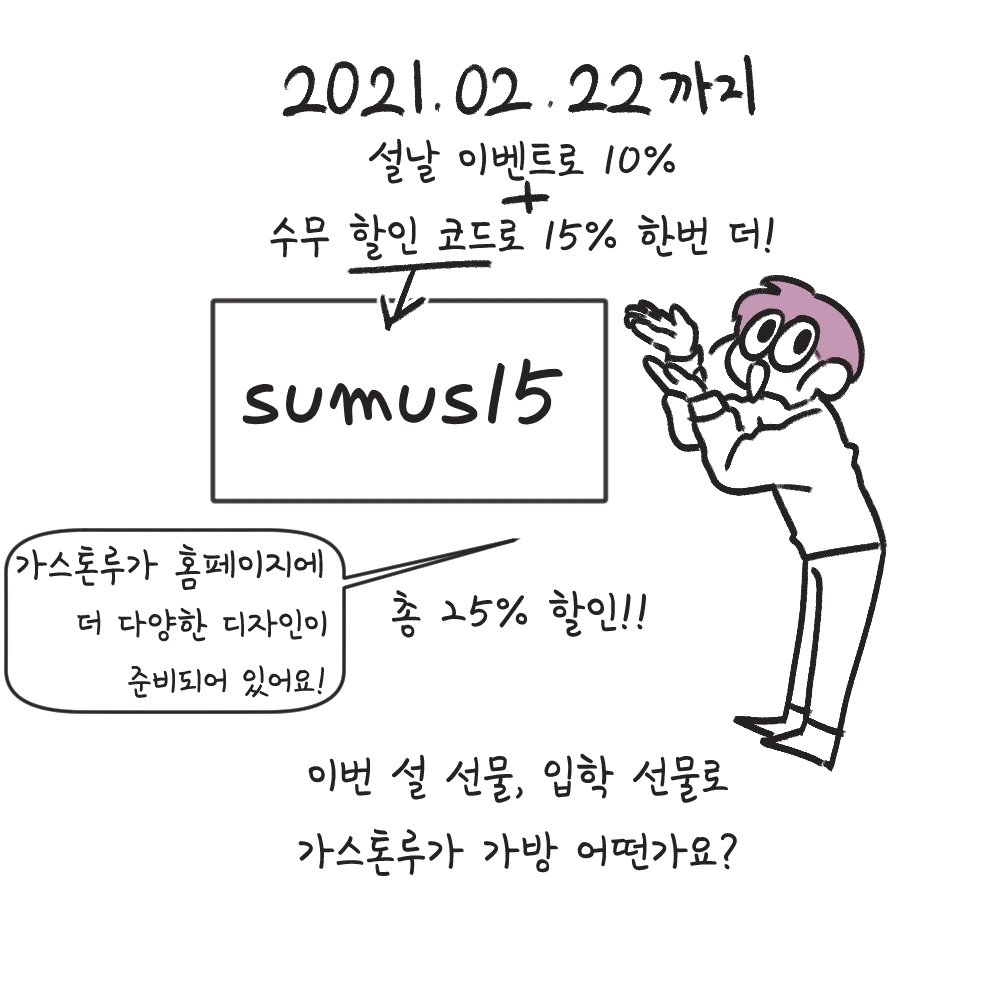 2021.02.22까지
설날 이벤트로 10%
+
수무 할인 코드로 15% 한번 더!
sumus15
가스톤루가 홈페이지에
더 다양한 디자인이
준비되어 있어요!
총 25% 할인!!
이번 설 선물, 입학 선물로
가스톤루가 가방 어떤가요?